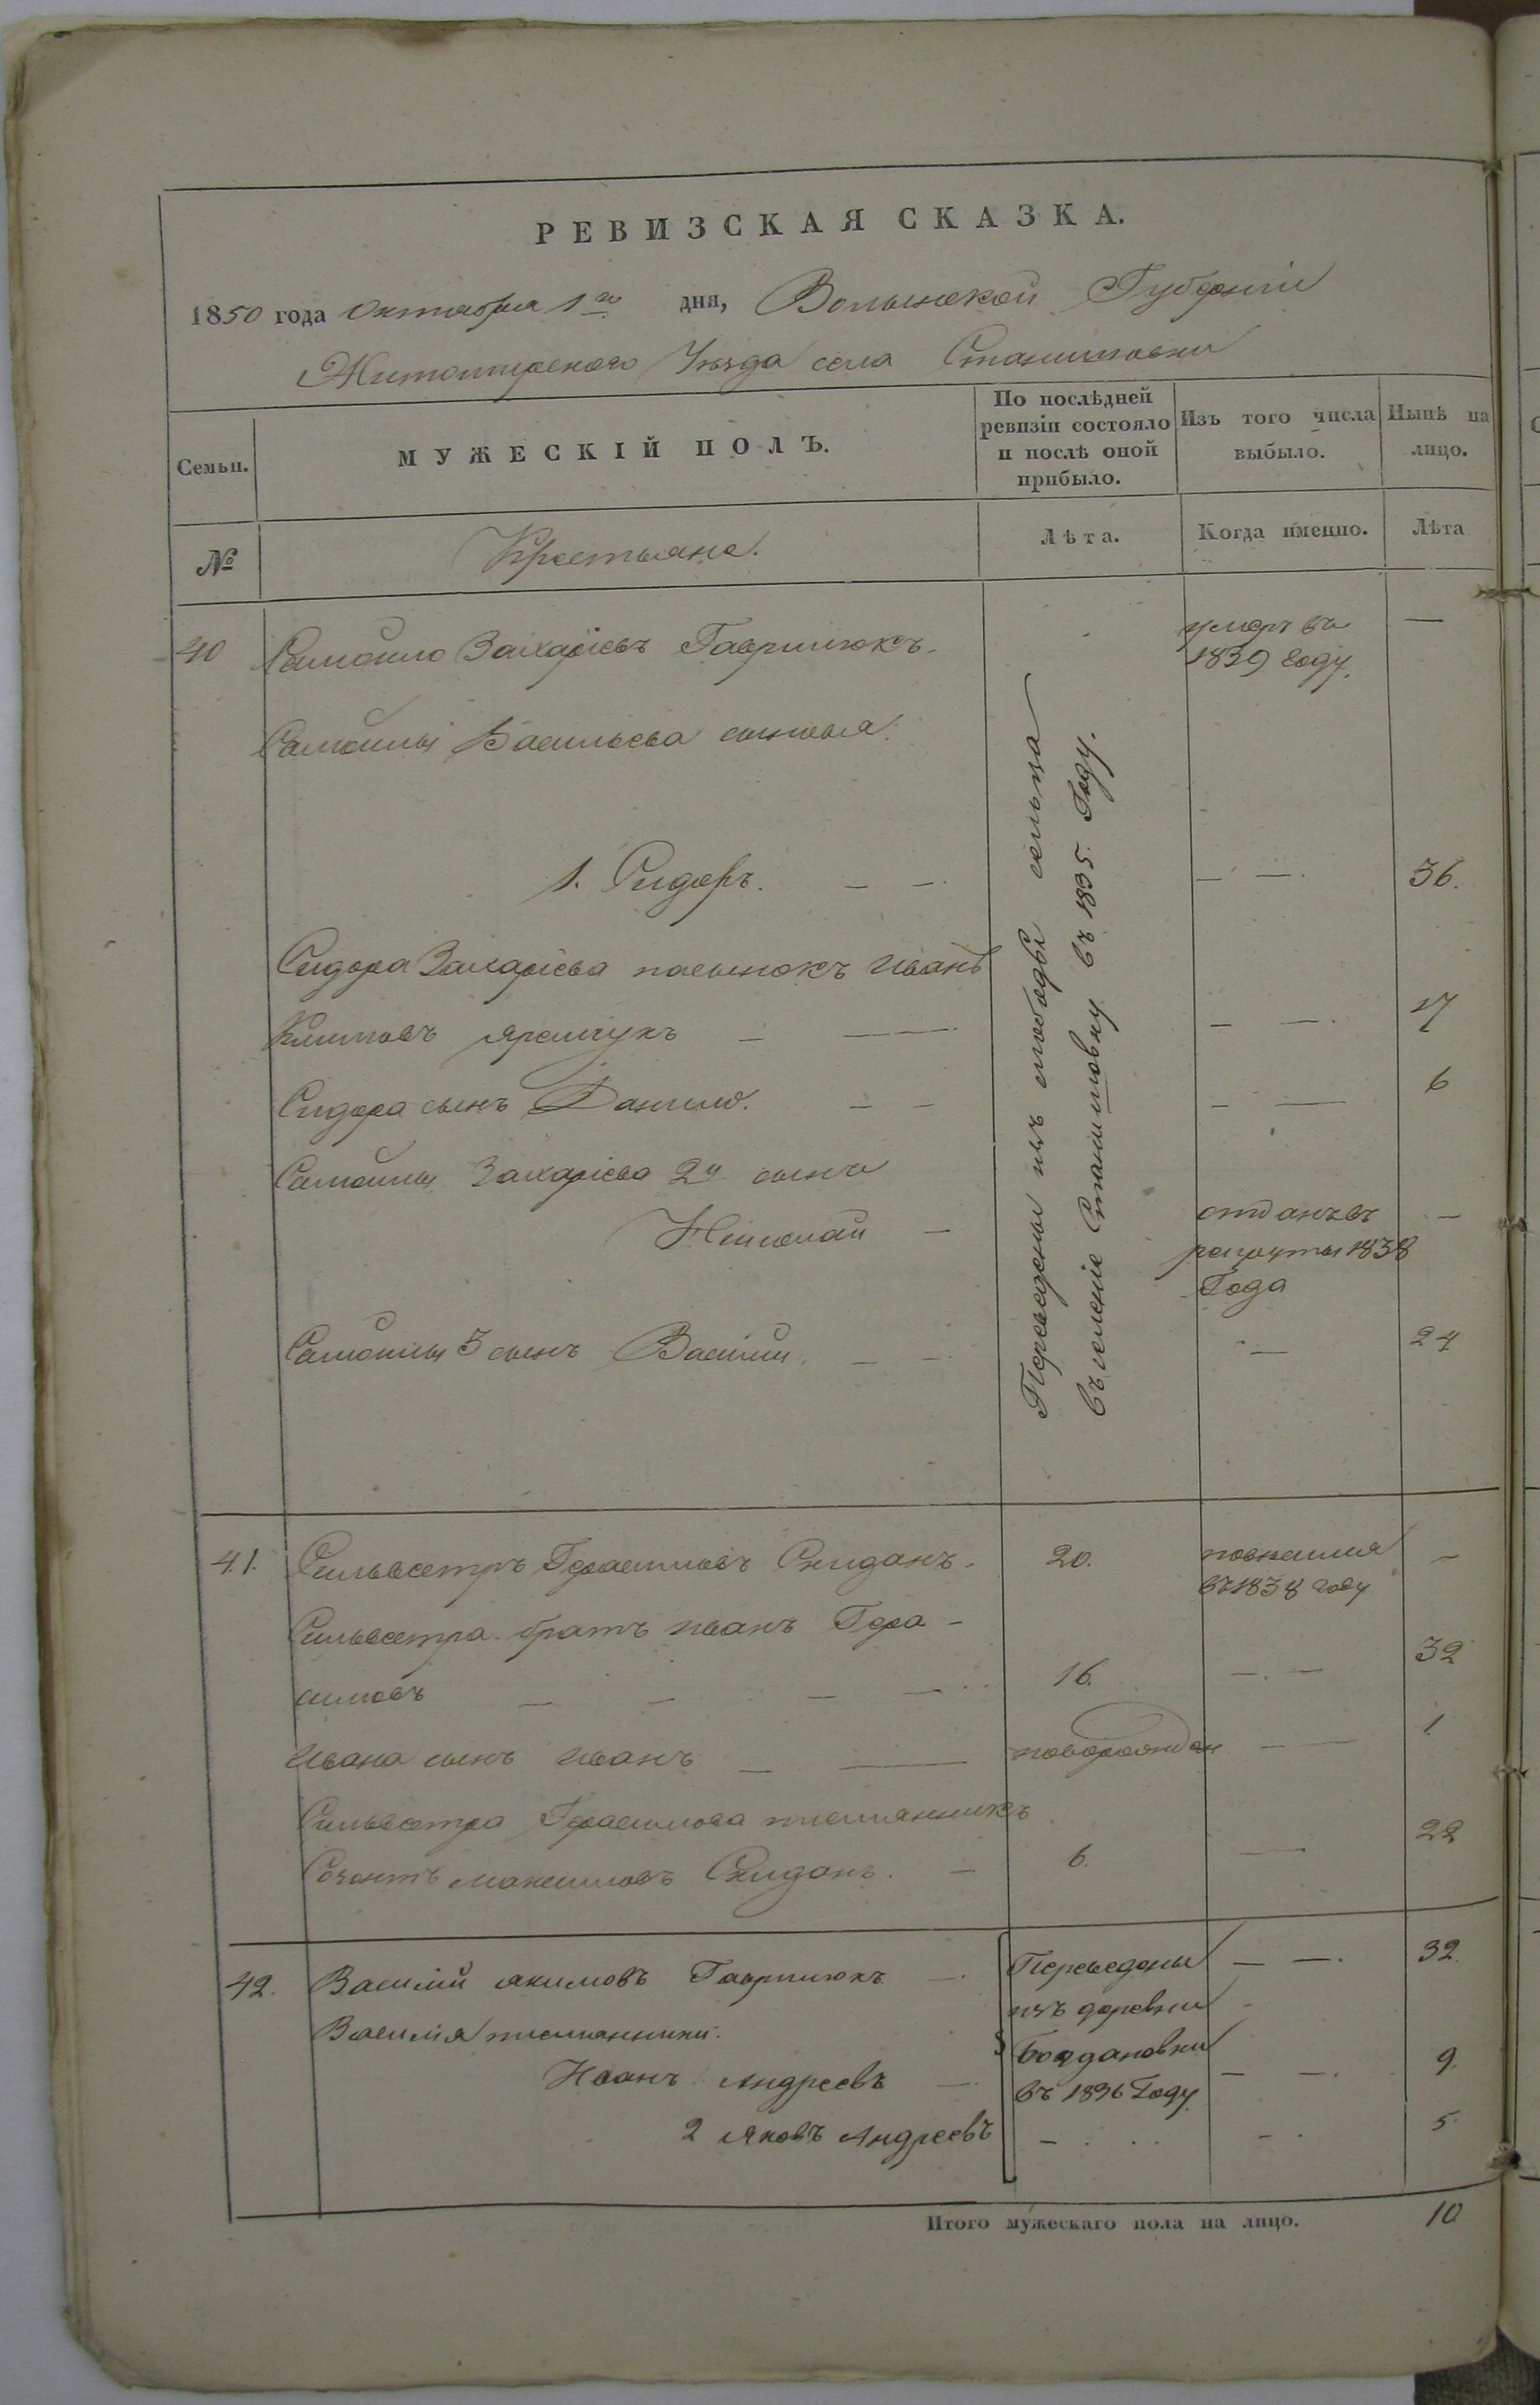 РЕВИЗСКАЯ СКАЗКА.
1850 года Октября 1го дня, Волынской Губернiи
Житомирскаго Уѣзда села Станишовки
Семьи.
МУЖЕСКІЙ ПОЛЪ.
По послѣдней ревизіи состояло и послѣ оной прибыло.
Изъ того числа выбыло.
Нынѣ на лицо.
№
Крестьяне.
Лѣта.
Когда именно.
Лѣта
40 Самойло Захаріевъ Гаврилюкъ. умеръ въ —
1839 году.
Самойлы Васильева сыновья.
1. Сидоръ. — — — —. 36.
Сидора Захаріева пасынокъ Иванъ
Климовъ Яремчукъ — — — —. 17
Сидора сынъ Данило. — — — — 6
Самойлы Захаріева 2й сынъ
Николай — отданъ въ —
рекруты 1838
Года
Самойлы 3 сынъ Василий. — — — 24
Переведены изъ слободы сельца
въ селеніе Станишовку въ 1835. Году.
41. Сильвестръ Герасимовъ Скиданъ. 20. —
въ 1838 году
Сильвестра братъ Иванъ Гера-
симовъ — — — — 16. — — 32
Ивана сынъ Иванъ — — новорожден — — 1
Сильвестра Герасимова племянникъ
Максимовъ Скиданъ. — 6. — 22
42. Василій Якимовъ Гаврилюкъ —. Переведены — —. 32.
изъ деревни
Василія племянники.
Богдановки
Иванъ Андреевъ — въ 1836 Году — —. 9.
2 Яковъ Андреевъ — . . . — . 5.
Итого мужескаго пола на лицо. 10